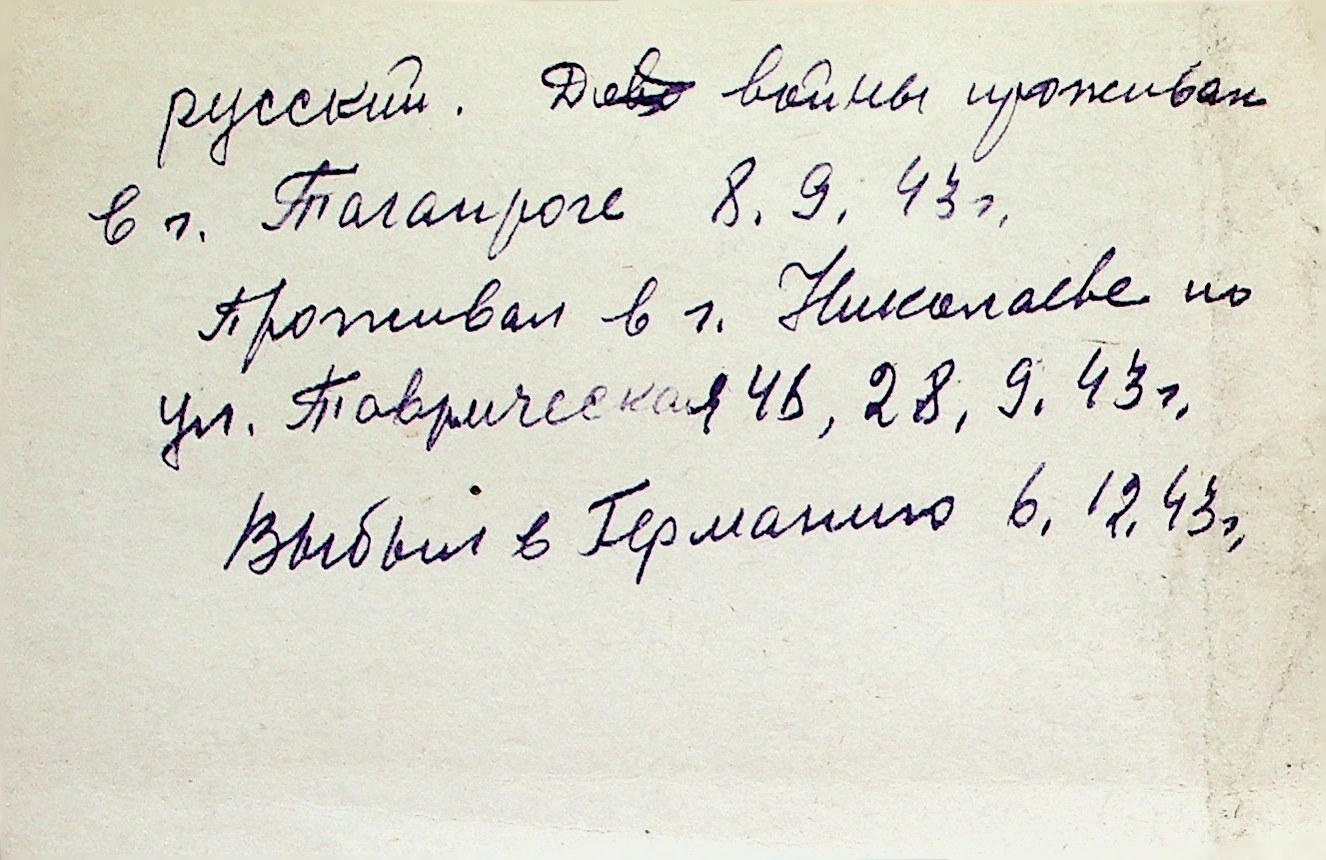 русский. До войны проживал
в г. Таганроге 8. 9. 43 г.
Проживал в г. Николаеве по
ул. Таврическая 46, 28, 9. 43 г.
Выбыл в Германию 6. 12. 43 г,